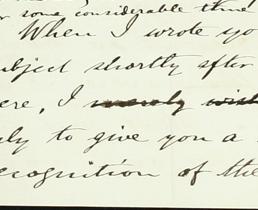 r some considerable time
When I wrote yo
ubject shortly after
ere, I merely wish
ply to give you a
ecognition of the